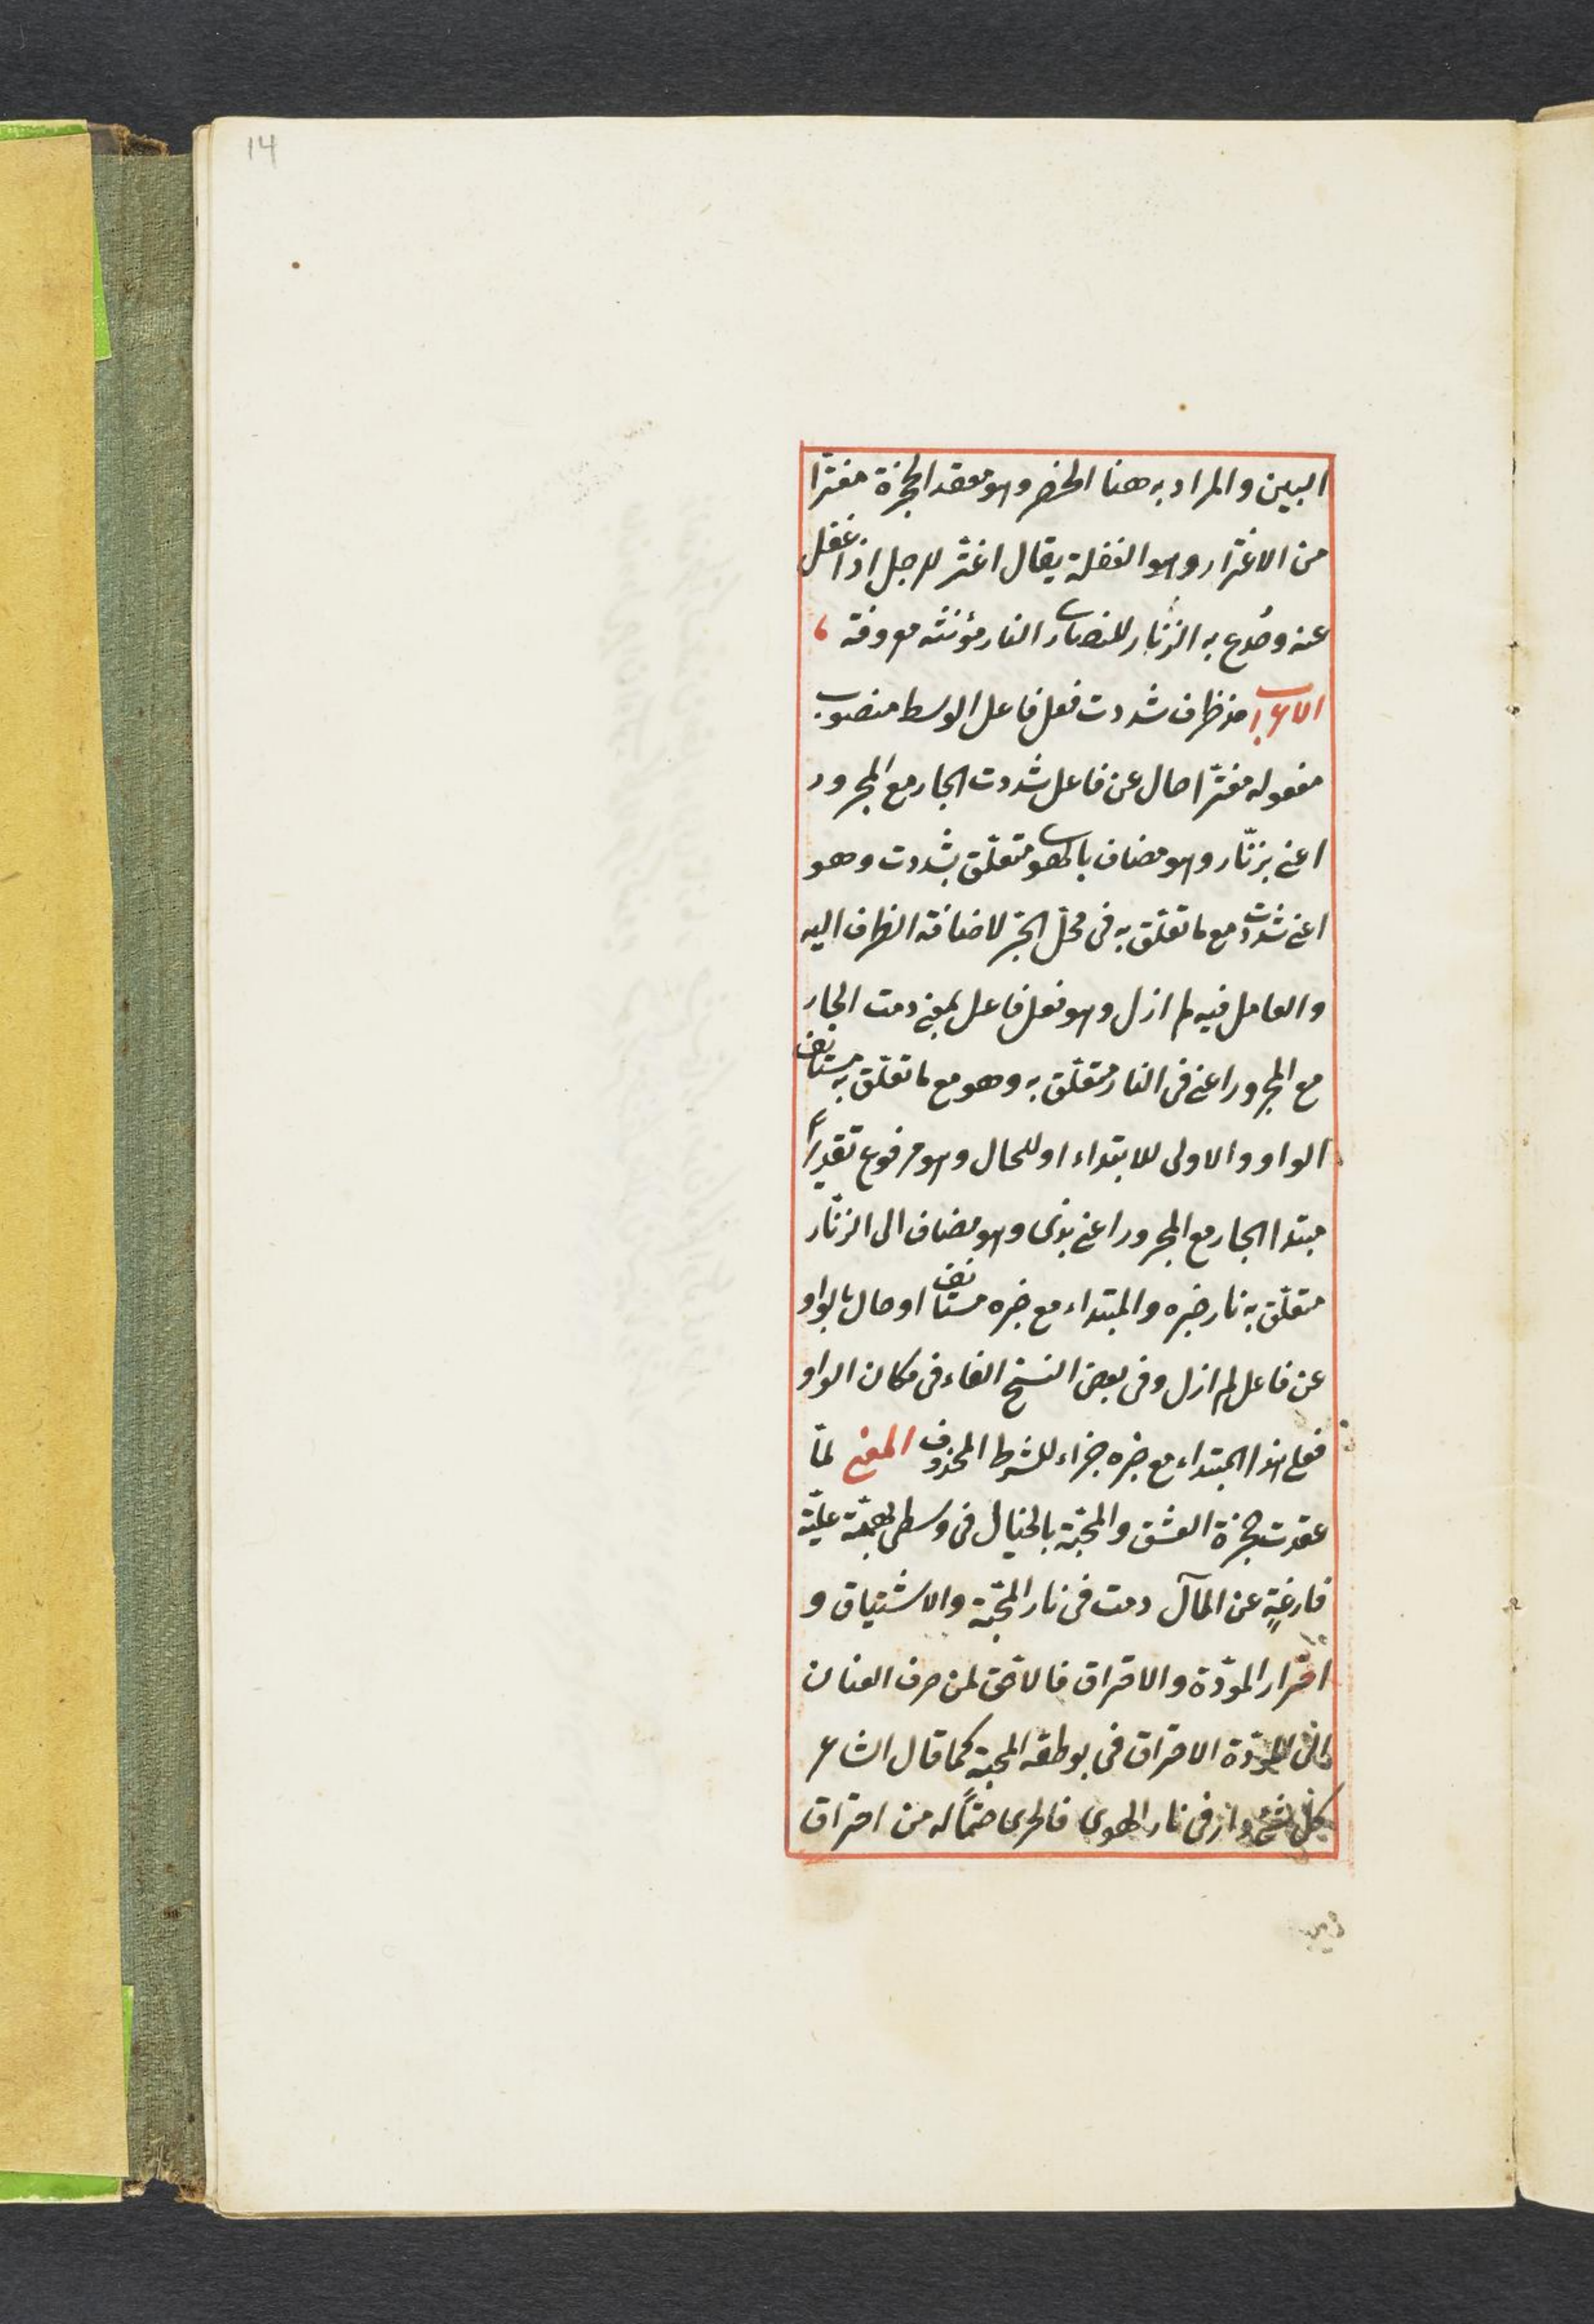 14
البين والمراد به هنا الخصر وهو معقد الحجزة مغترّا
من الاغترار وهو الغفلة يقال اغترّ الرجل اذا غفل
عنه وخُدع به الزنّار للنصارى النار مؤنثه معروفة
الاعراب مذ ظرف شددت فعل فاعل الوسط منصوب
مفعوله مغترّا حال عن فاعل شددت الجار مع المجرور
اعنى بزنّار وهو مضاف بالهوى متعلّق بشددت وهو
اعنى شددت مع ما تعلّق به فى محلّ الجرّ لاضافة الظرف اليه
والعامل فيه لم ازل وهو فعل فاعل بمعنى دمت الجار
مع المجرور اعنى فى النار متعلّق به وهو مع ما تعلّق به مستانف
الواو والاولى للابتداء او للحال وهو مرفوع تقديرًا
مبتدا الجار مع المجرور اعنى بذى وهو مضاف الى الزنّار
متعلّق به نار خبره والمبتداء مع خبره مستانف او حال بالواو
عن فاعل لم ازل وفى بعض النسخ الفاء فى مكان الواو
فعلى هذا المبتداء مع خبره جزاء للشرط المحذوف المعنى لمّا
عقدت حجزة العشق والمحبّة بالخيال فى وسطى بهمّة عليّة
فارغةٍ عن المآل دمت فى نار المحبّة والاشتياق و
المودّة والاحتراق فالاحقّ لمن صرف العنان
الى المودّة الاحتراق فى بوطقه المحبة كما قال الشاعر
فى نار الهوى فالحرى حتمًا له من احتراق